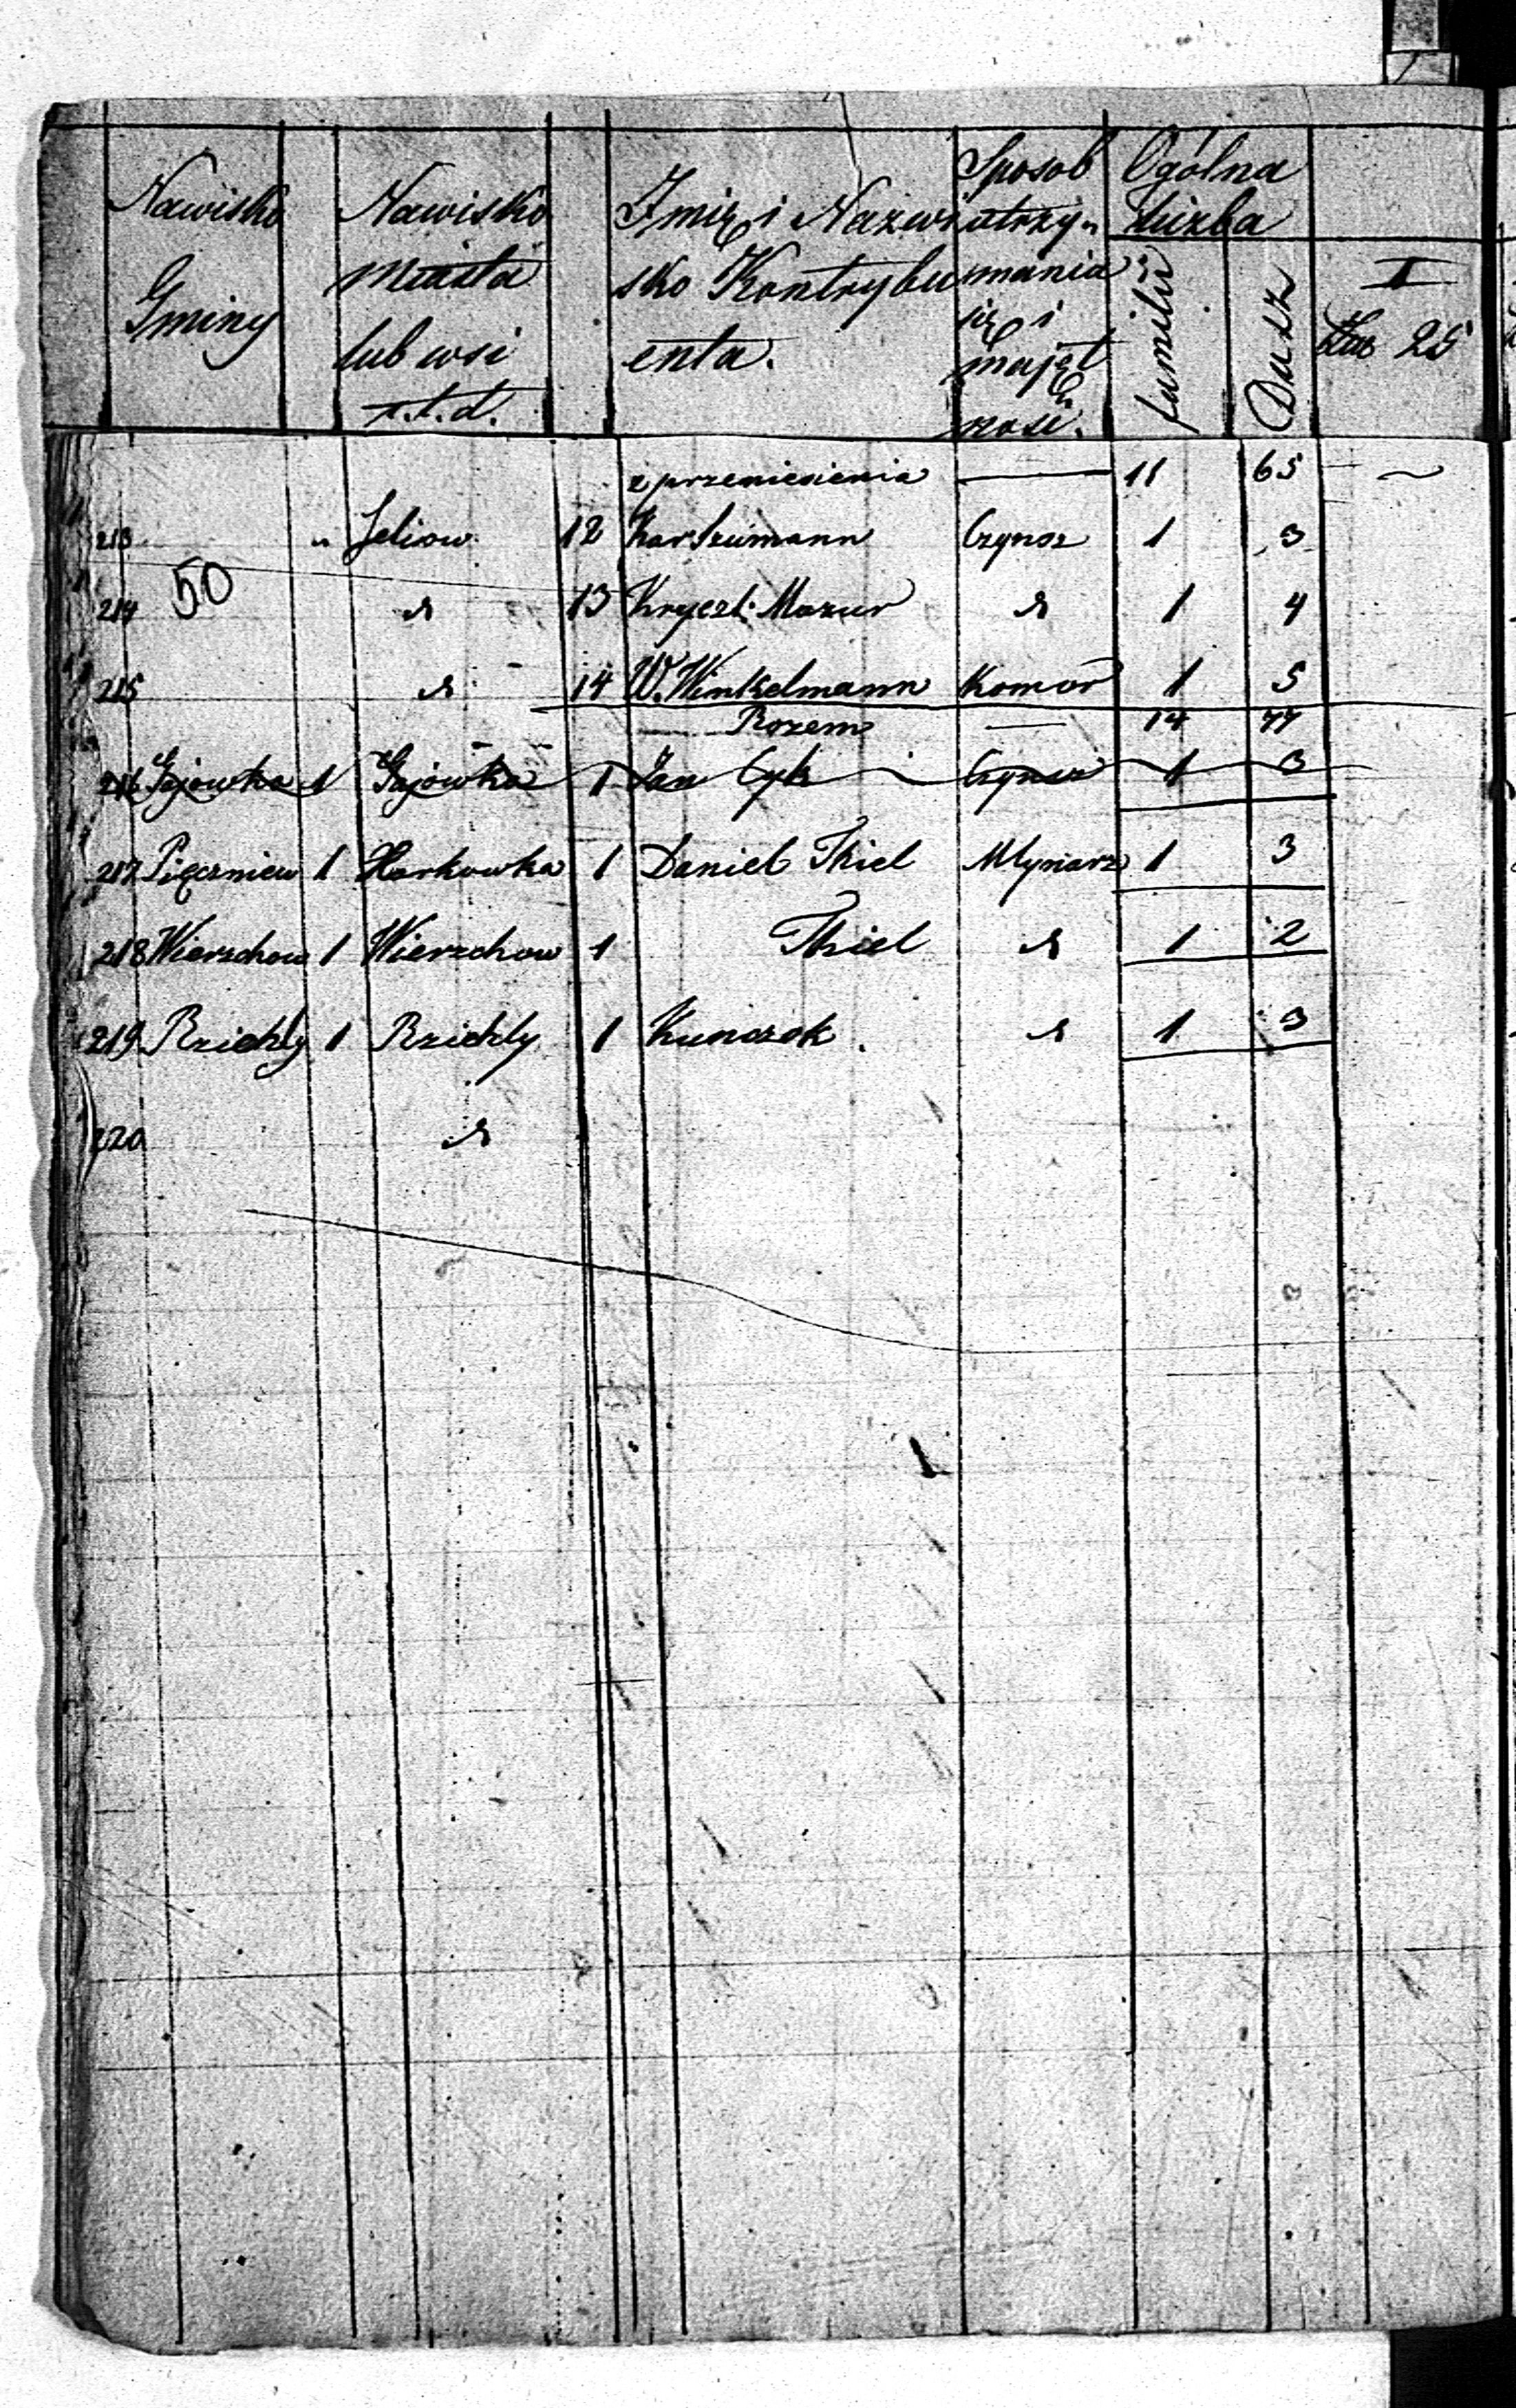 Nawisko Gminy
Nawisko Miasta lub wsi i.t.d.
Imię i Nazwisko Kontrybuenta.
Sposob utrzymania się i majętnosci.
Ogólna liczba
familii
Dusz
I
Klas 25
z przeniesienia — 11 65 —
213 " Jeliow 12 Kar Szumann Czynsz 1 3
50
214 " 13 Kryszt: Mazur " 1 4
215 " 14 W. Winkelmann Komor 1 5
Razem — 14 77
216 Gajowka 1 Gajowka 1 Jan Cyk Czynsz 1 3
217 Pięczniew 1 Harkowka 1 Daniel Thiel Mlynarz 1 3
218 Wierzchow 1 Wierzchow 1 Thiel " 1 2
219 Rzichly 1 Rzichly 1 Kunczak " 1 3
220 "